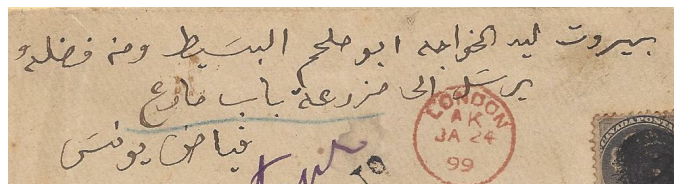 بيروت ليد الخواجه ابو ملحم البسيط ومن فضله
يرسل الى مزرعة باب مارع
فياض يونس
LONDON
AK
JA 24
99
CANADA POSTAGE